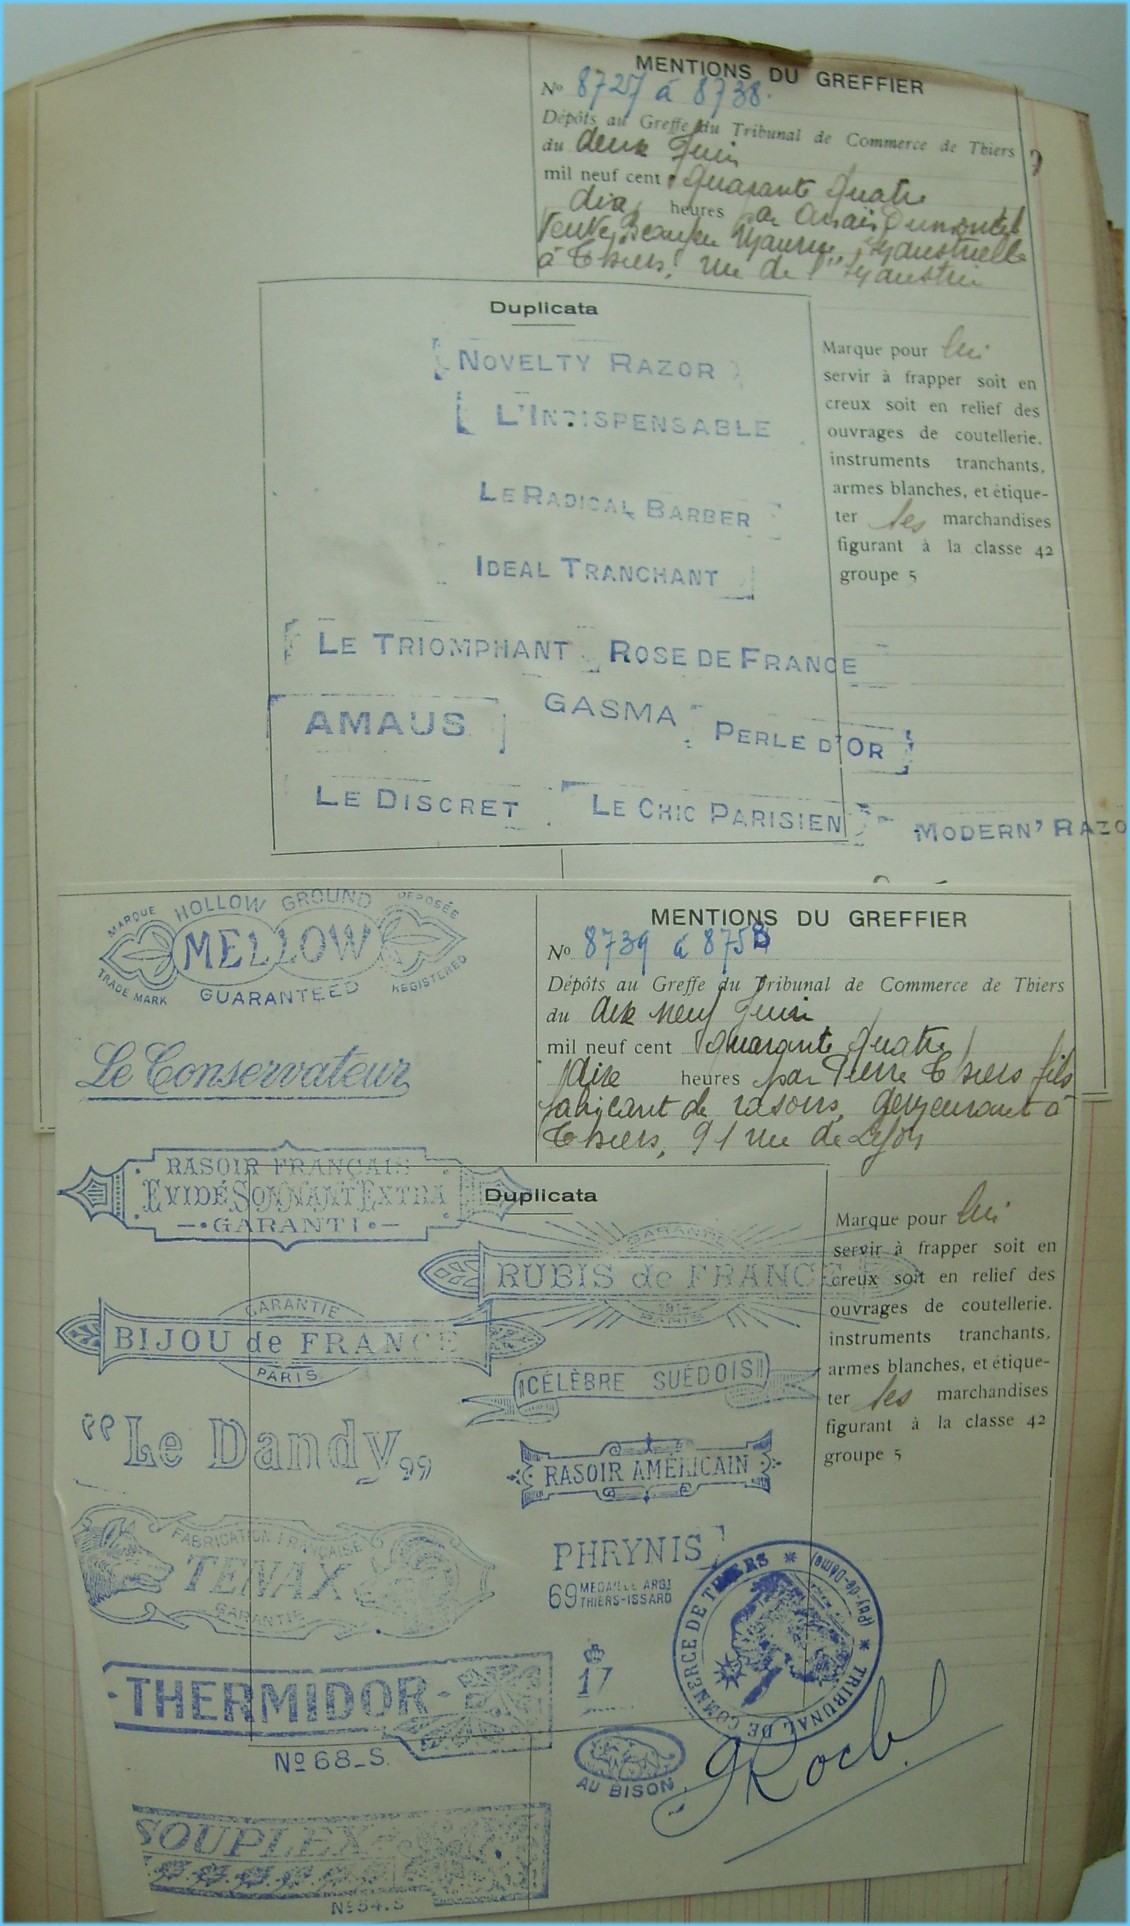 MENTIONS DU GREFFIER
No 8727 à 8738.
Dépôts au Greffe du Tribunal de Commerce de Thiers
du deux Juin
mil neuf cent quarante quatre
dix heures
à Thiers, rue de l'
Duplicata
NOVELTY RAZOR
L'INDISPENSABLE
LE RADICAL BARBER
IDEAL TRANCHANT
LE TRIOMPHANT ROSE DE FRANCE
AMAUS GASMA PERLE D'OR
LE DISCRET LE CHIC PARISIEN MODERN' RAZO
Marque pour lui
servir à frapper soit en
creux soit en relief des
ouvrages de coutellerie,
instruments tranchants,
armes blanches, et étique-
ter les marchandises
figurant à la classe 42
groupe 5
MENTIONS DU GREFFIER
No 8739 à 8758
Dépôts au Greffe du Tribunal de Commerce de Thiers
du dix neuf Juin
mil neuf cent quarante quatre
dix heures par Pierre Thiers fils
fabricant de rasoirs, demeurant à
Thiers, 91 rue de Lyon
MARQUE HOLLOW GROUND DEPOSÉE
MELLOW
TRADE MARK GUARANTEED REGISTERED
Le Conservateur
RASOIR FRANÇAIS
EVIDÉ SONNANT EXTRA
GARANTI
Duplicata
GARANTIE
RUBIS de FRANCE
1914
PARIS
GARANTIE
BIJOU de FRANCE
PARIS
CÉLÈBRE SUÉDOIS
"Le Dandy"
RASOIR AMÉRICAIN
FABRICATION FRANÇAISE
TENAX
GARANTIE
PHRYNIS
69 MEDAILLE ARGT
THIERS-ISSARD
17
THERMIDOR
No 68_S.
AU BISON
SOUPLEX
No 54.S
Marque pour lui
servir à frapper soit en
creux soit en relief des
ouvrages de coutellerie,
instruments tranchants,
armes blanches, et étique-
ter les marchandises
figurant à la classe 42
groupe 5
TRIBUNAL DE COMMERCE DE THIERS * (Puy-de-Dôme) *